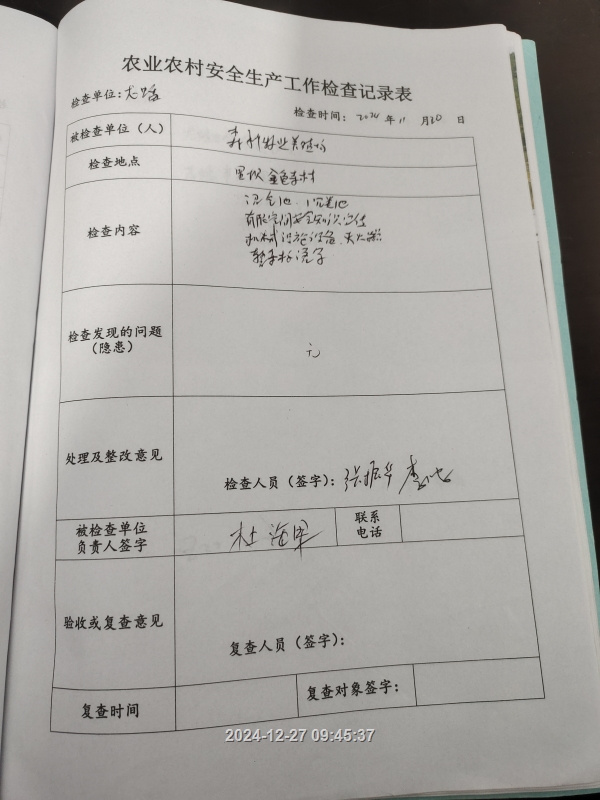 农业农村安全生产工作检查记录表
检查单位:
检查时间: 2024 年 11 月 20 日
被检查单位(人)
检查地点
检查内容
有限空间安全知识宣传
机械设施设备、灭火器
警示标语字
检查发现的问题
(隐患)
无
处理及整改意见
检查人员(签字): 张振华 李
被检查单位
负责人签字
杜海军
联系
电话
验收或复查意见
复查人员(签字):
复查时间
复查对象签字:
2024-12-27 09:45:37